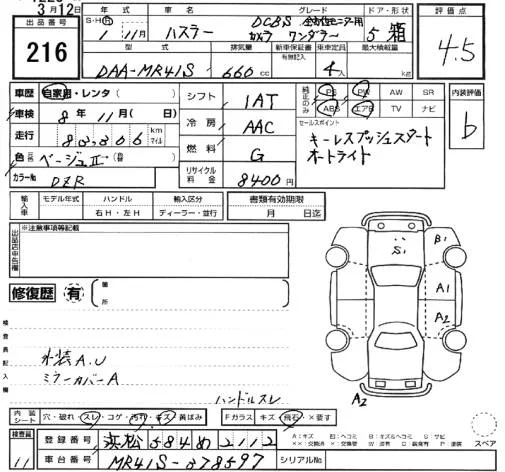 3月12日
出品番号
216
年式 車名 グレード ドア・形状
S・H・R 1年 11月 ハスラー DCBS 全方位モニター用カメラ ワンダラー 5 箱
型式 排気量 新車保証書 有無記入 乗車定員 最大積載量
DAA-MR41S 660cc 4人 kg
評価点
4.5
車歴 自家用・レンタ( )
車検 8年11月( )日
走行 83,306 km マイル
色 ベージュⅡ
カラーNo DZR
シフト 1AT
冷房 AAC
燃料 G
リサイクル料金 8400円
純正のみ PS PW AW SR
ABS エアB TV ナビ
セールスポイント
キーレスプッシュスタート
オートライト
内装評価
b
輸入車 モデル年式 ハンドル 輸入区分
右H・左H ディーラー・並行
書類有効期限
月 日迄
出品店申告欄
※注意事項等記載
修復歴 有 箇所
検査員記入欄
外装A.U
ミラーカバーA
ハンドルスレ
S1
B1
A1
A2
A2
内装シート 穴・破れ・スレ・コゲ・汚れ・キズ・黄ばみ
Fガラス キズ・飛石・×要す
スペア
検査員 11
登録番号 浜松584め212
車台番号 MR41S-378597
シリアルNo